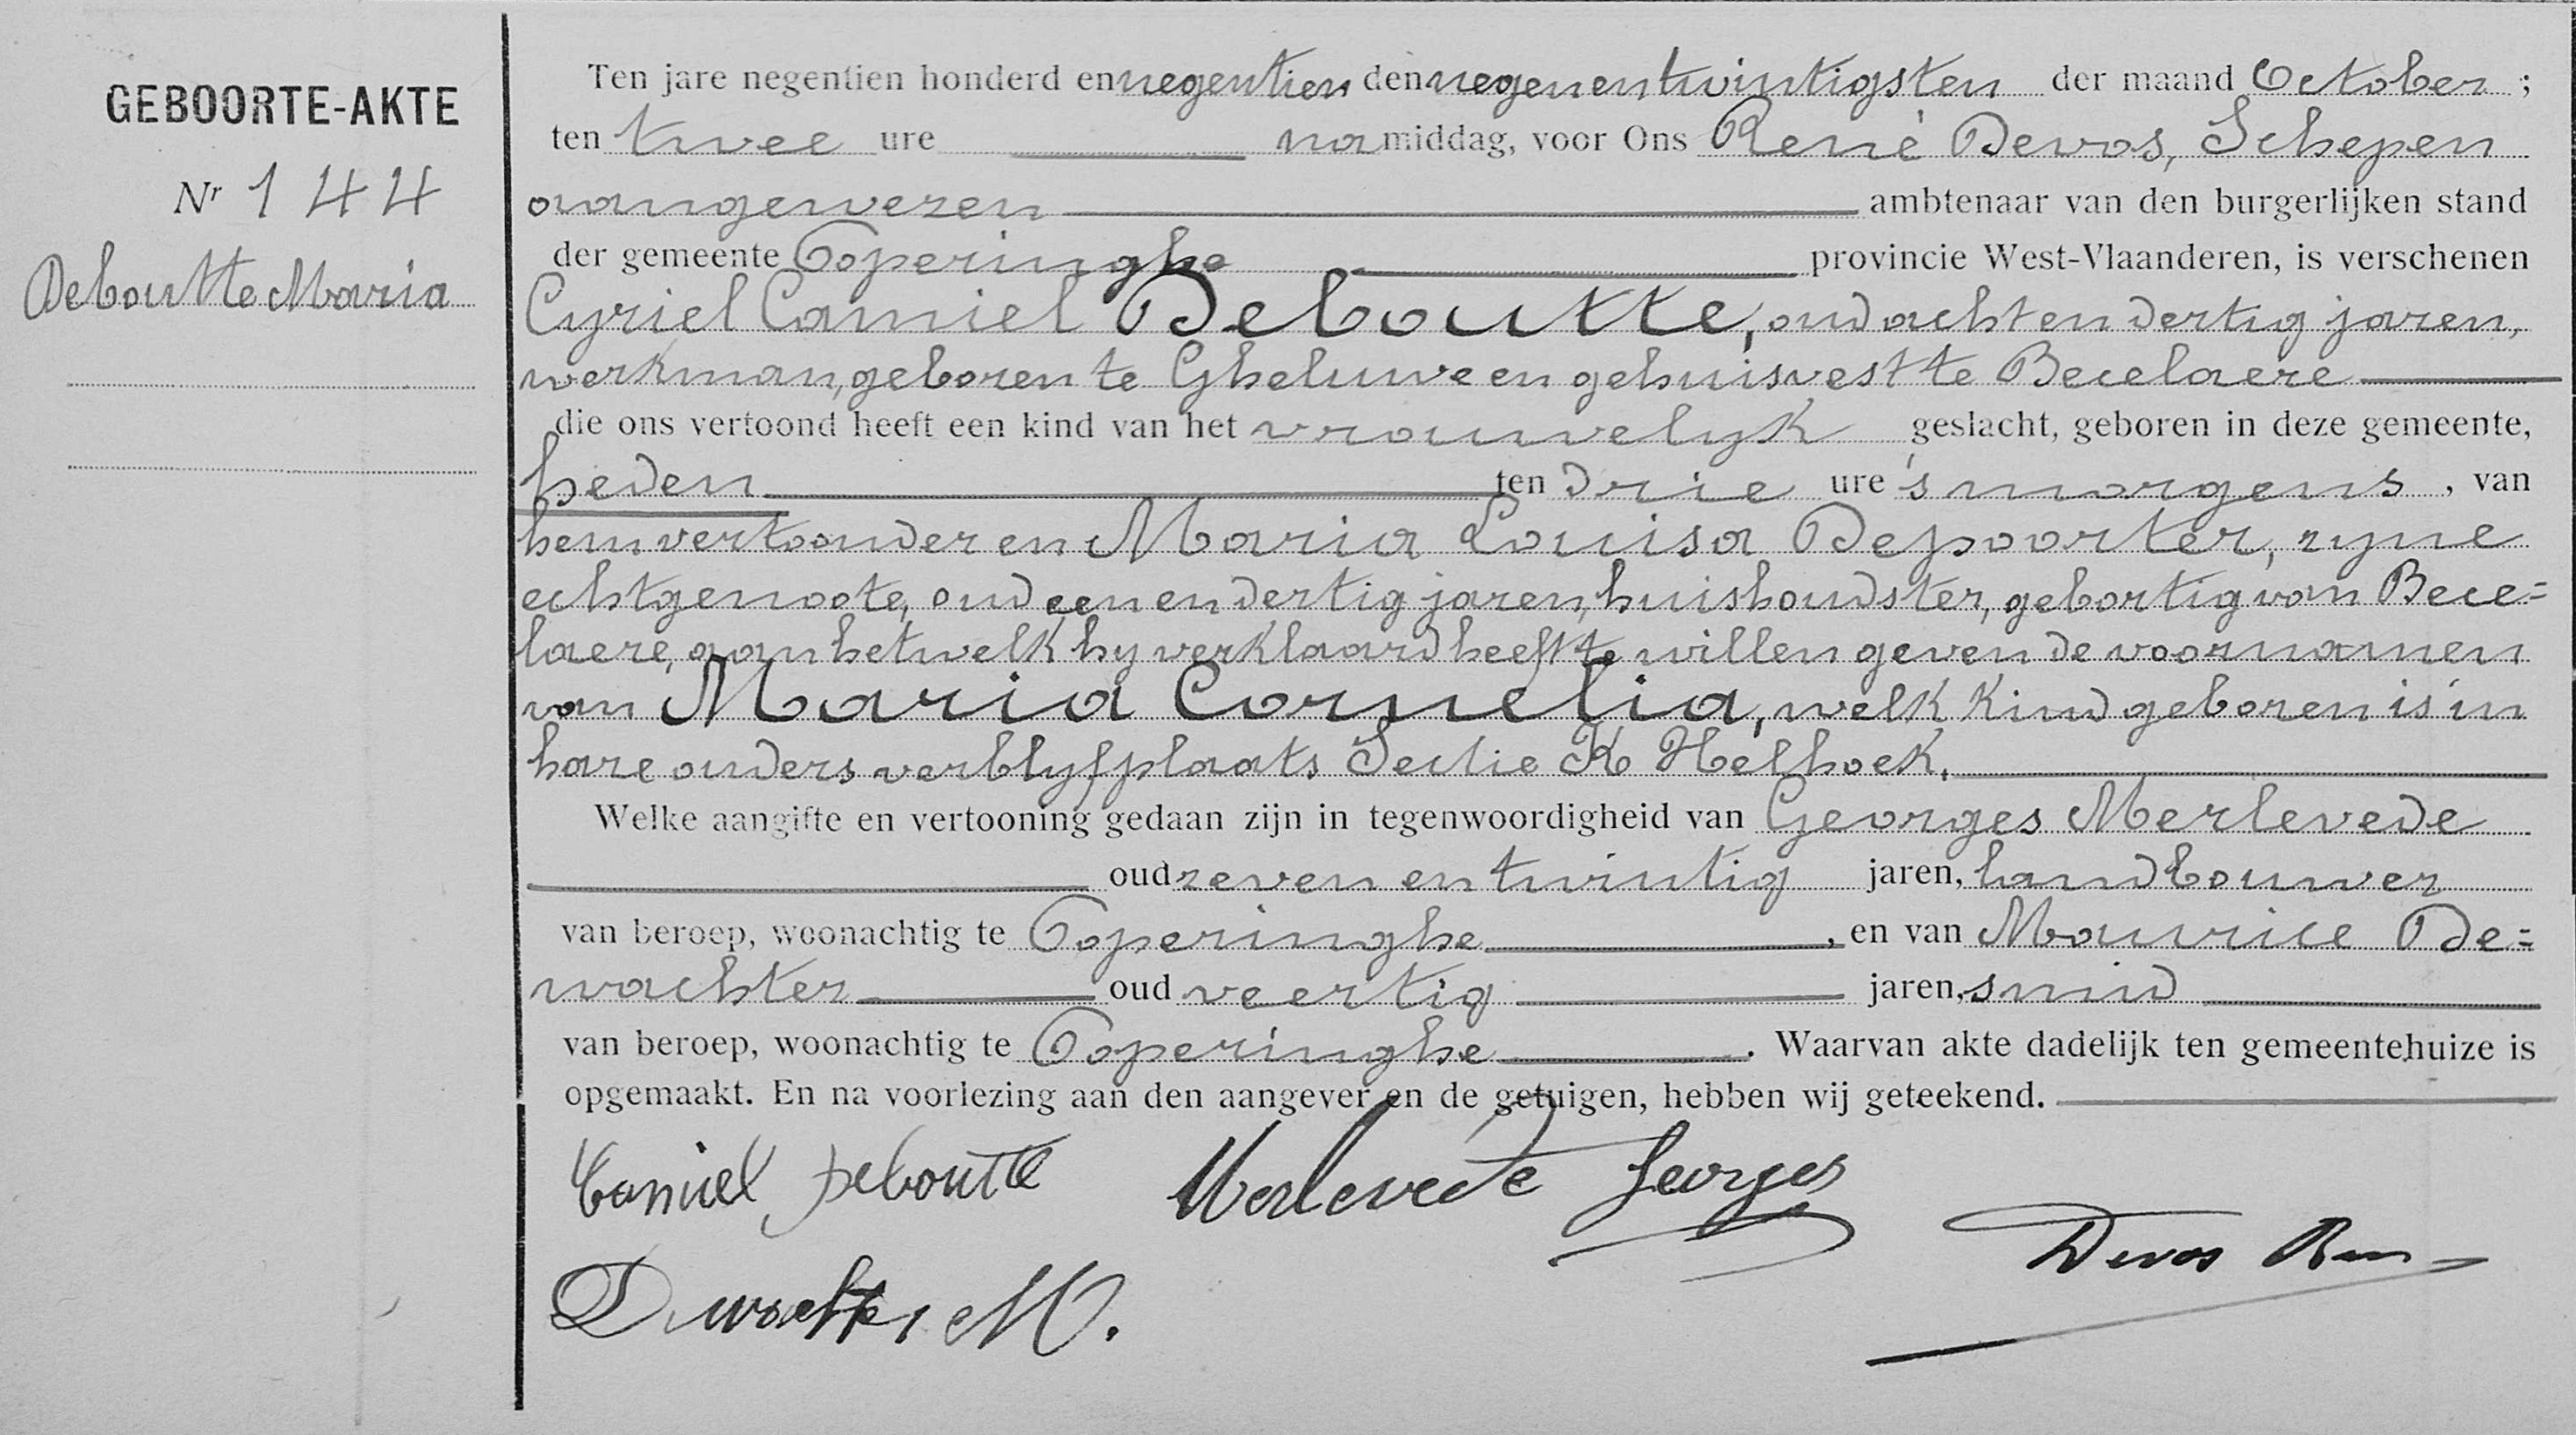 GEBOORTE-AKTE
Nr 144
Deboutte Maria
Ten jare negentien honderd en negentien den negenentwintigsten der maand October ;
ten twee ure namiddag, voor Ons René Devos, Schepen
aangewezen ambtenaar van den burgerlijken stand
der gemeente Poperinghe provincie West-Vlaanderen, is verschenen
Cyriel Camiel Deboutte, oud acht en dertig jaren,
werkman, geboren te Gheluwe en gehuisvest te Becelaere
die ons vertoond heeft een kind van het vrouwelyk geslacht, geboren in deze gemeente,
heden ten drie ure 's morgens, van
hem vertoonder en Maria Louisa Depoorter, zyne
echtgenoote, oud een en dertig jaren, huishoudster, geboortig van Bece=
laere, aan hetwelk hy verklaard heeft te willen geven de voornamen
van Maria Cornelia, welk kind geboren is in
hare ouders verblyfplaats Sectie K Helhoek.
Welke aangifte en vertooning gedaan zijn in tegenwoordigheid van Georges Merlevede
oud zeven en twintig jaren, landbouwer
van beroep, woonachtig te Poperinghe, en van Maurice De=
wachter oud veertig jaren, smid
van beroep, woonachtig te Poperinghe. Waarvan akte dadelijk ten gemeentehuize is
opgemaakt. En na voorlezing aan den aangever en de getuigen, hebben wij geteekend.
Camiel Deboutte Merlevede Georges
Devos Ren
Dewachter M.